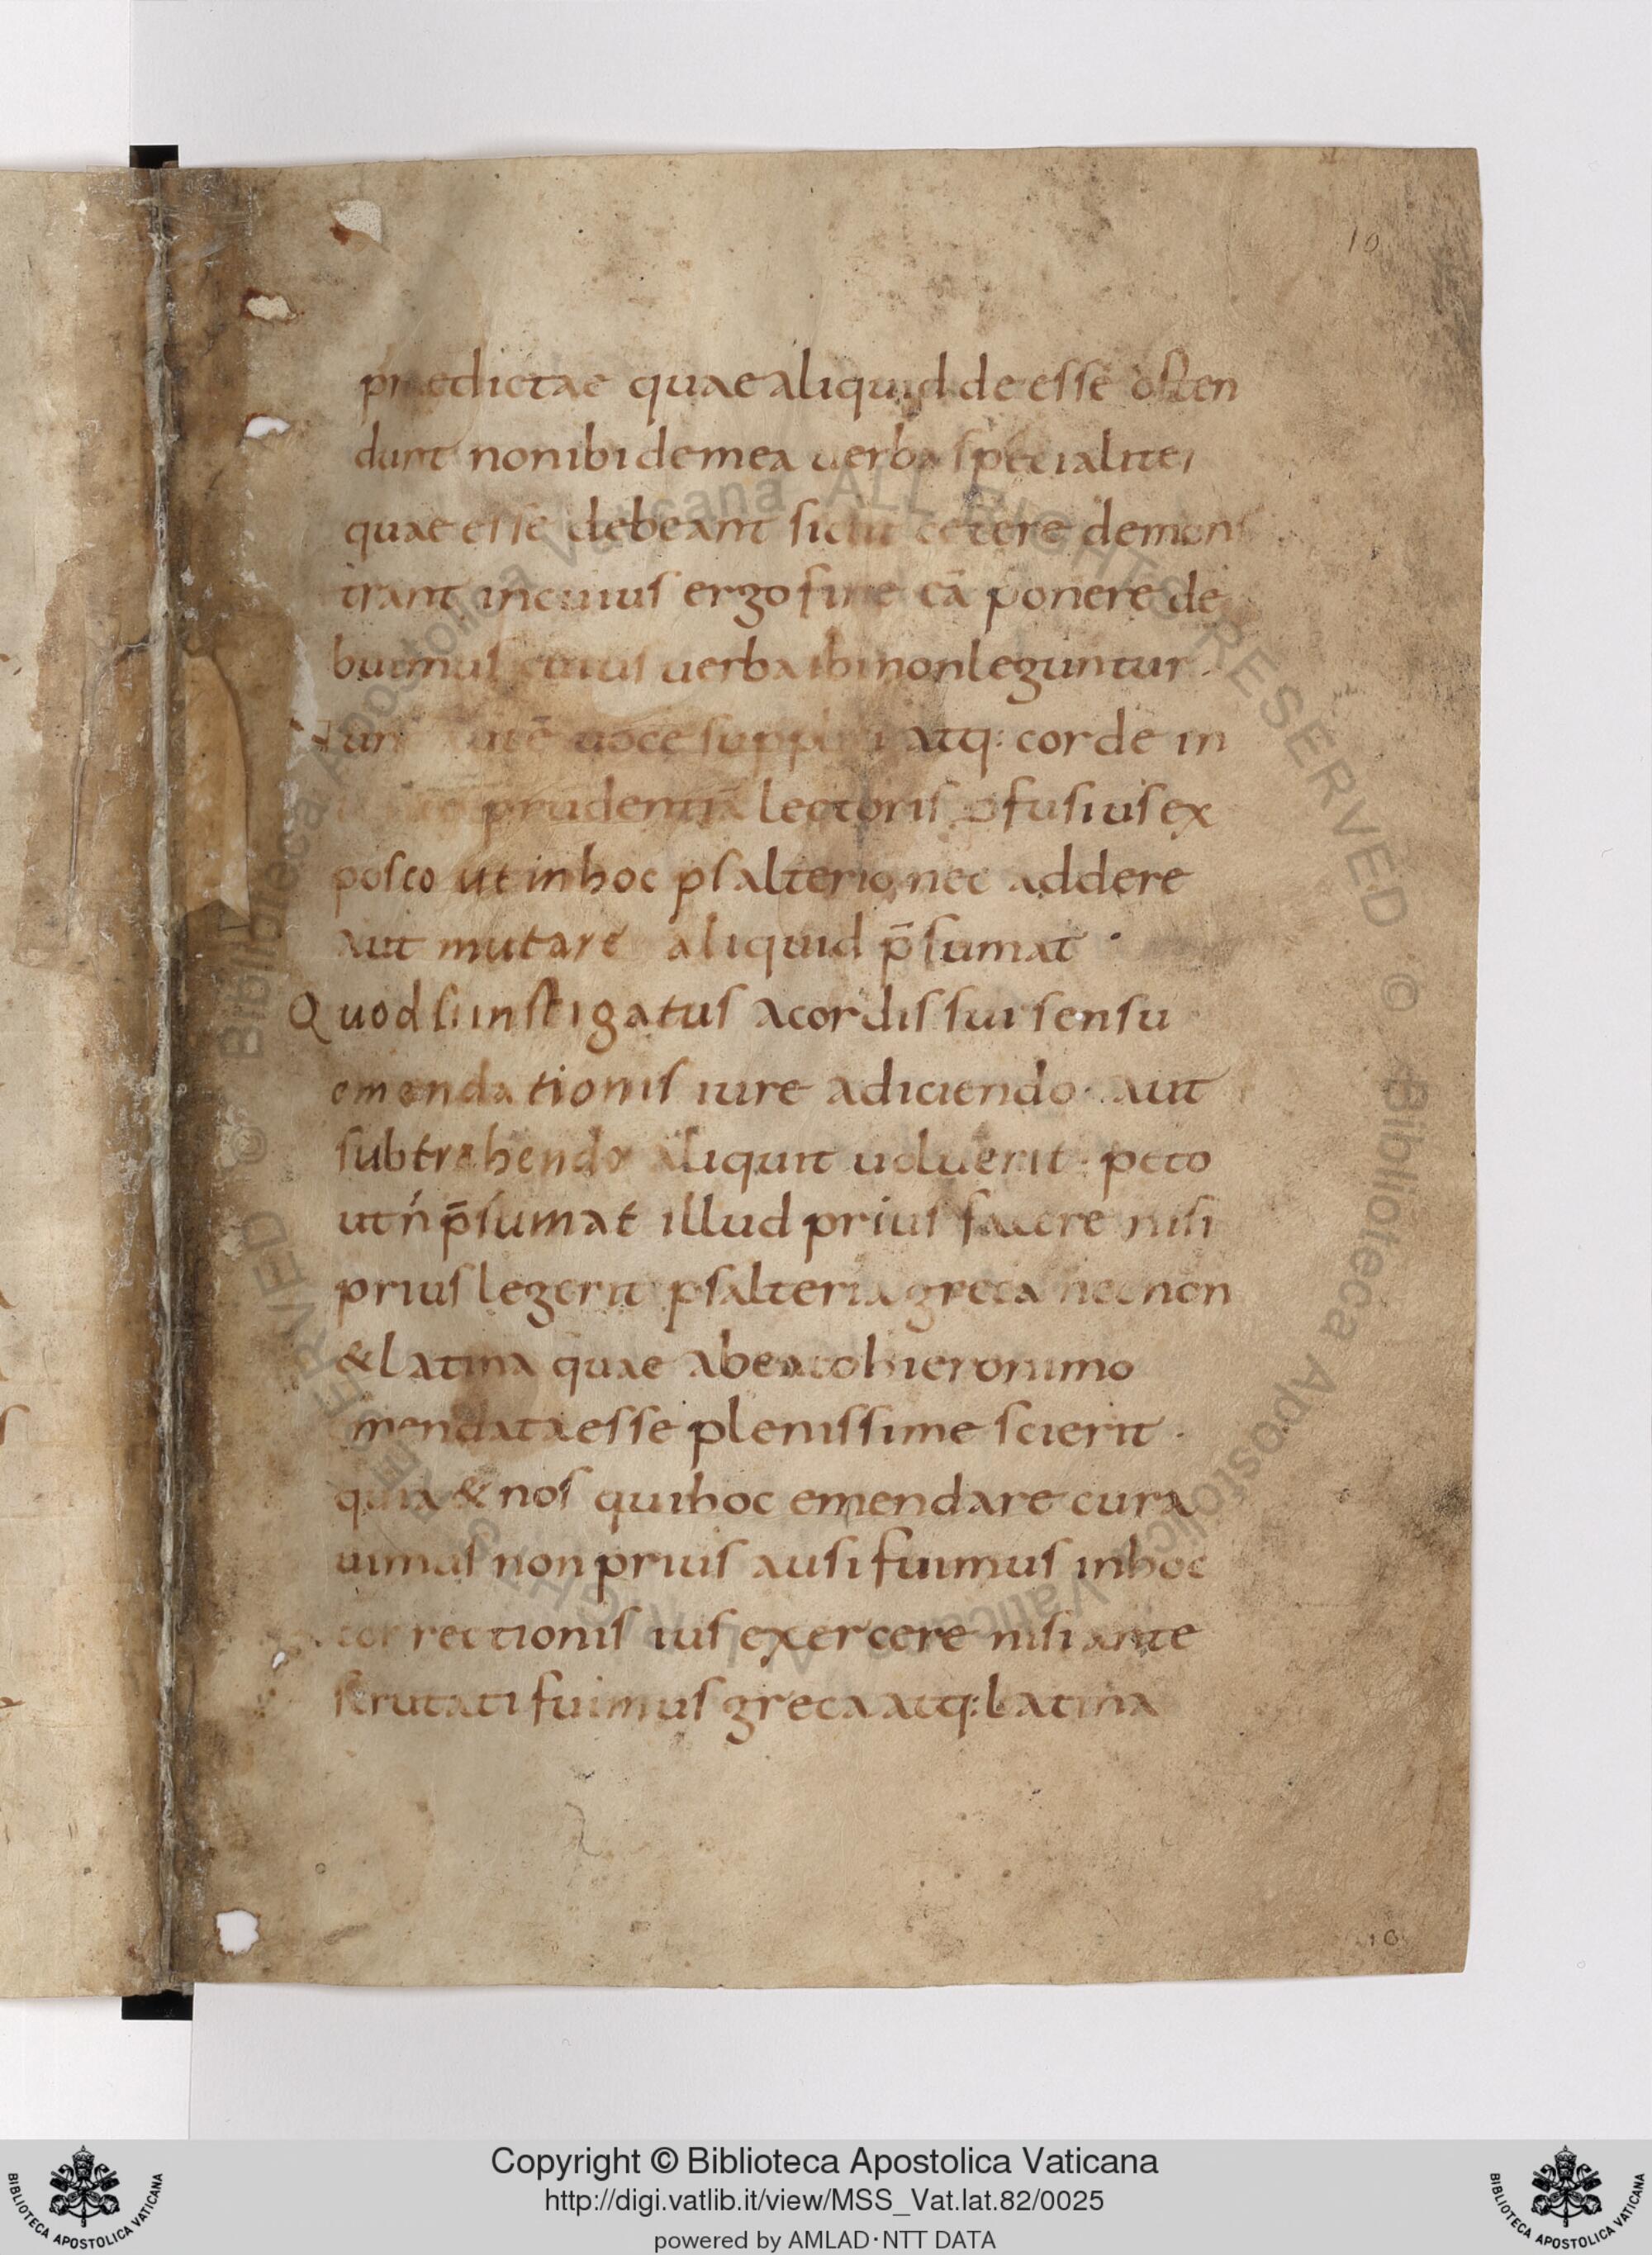 10
praedictae quae aliquid de esse osten
dunt non ibidem ea uerba specialiter
quae esse debeant sicut cetere demons
trant in cuius ergo fine cā ponere de
buimus cuius uerba ibi non leguntur.
uoce atq: corde in
prudentiā lectoris ꝓfusius ex
posco ut in hoc psalterio nec addere
aut mutare aliquid p̄sumat ·
Quod si instigatus a cordis sui sensu
emendationis iure adiciendo · aut
subtrahendo aliquit uoluerit · peto
ut ń p̄sumat illud prius facere nisi
prius legerit psalteria greca nec non
& latina quae a beato hieronimo
mendata esse plenissime scierit ·
quia & nos qui hoc emendare cura
uimus non prius ausi fuimus in hoc
correctionis ius exercere nisi ante
scrutati fuimus greca atq: latina
10
Copyright © Biblioteca Apostolica Vaticana
http://digi.vatlib.it/view/MSS_Vat.lat.82/0025
powered by AMLAD·NTT DATA
BIBLIOTECA APOSTOLICA VATICANA
BIBLIOTECA APOSTOLICA VATICANA